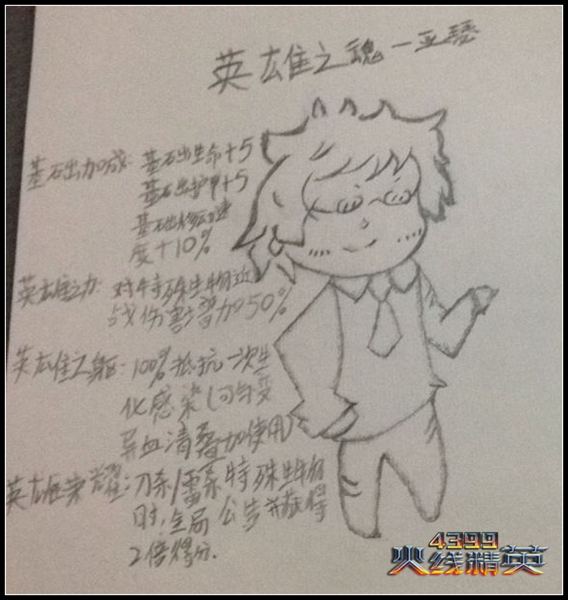 英雄之魂一亚瑟
基础加成: 基础生命+5
基础护甲+5
基础移动速
度+10%
英雄之力: 对特殊生物近
战伤害增加50%
英雄之躯: 100%抵抗一次生
化感染(可与变
异血清叠加使用)
英雄荣耀: 刀杀/雷杀特殊生物
时,全局公告并获得
2倍得分.
4399
火线精英